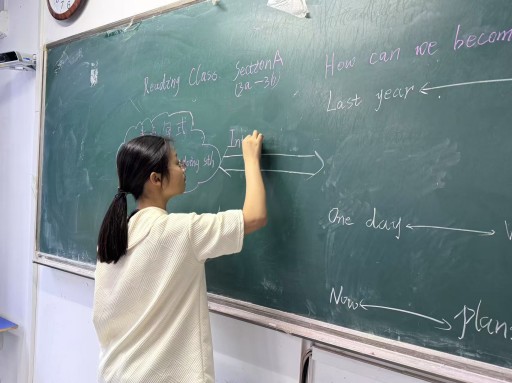 Reading Class Section A
(3a-3b)
How can we becom
Last year
式
doing sth
In
One day
Now
plans